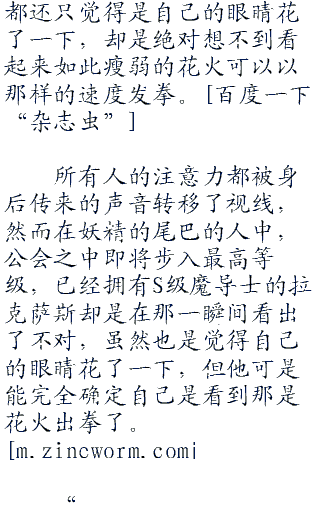 都还只觉得是自己的眼睛花
了一下，却是绝对想不到看
起来如此瘦弱的花火可以以
那样的速度发拳。[百度一下
“杂志虫”]
所有人的注意力都被身
后传来的声音转移了视线，
然而在妖精的尾巴的人中，
公会之中即将步入最高等
级，已经拥有S级魔导士的拉
克萨斯却是在那一瞬间看出
了不对，虽然也是觉得自己
的眼睛花了一下，但他可是
能完全确定自己是看到那是
花火出拳了。
[m.zincworm.com]
“